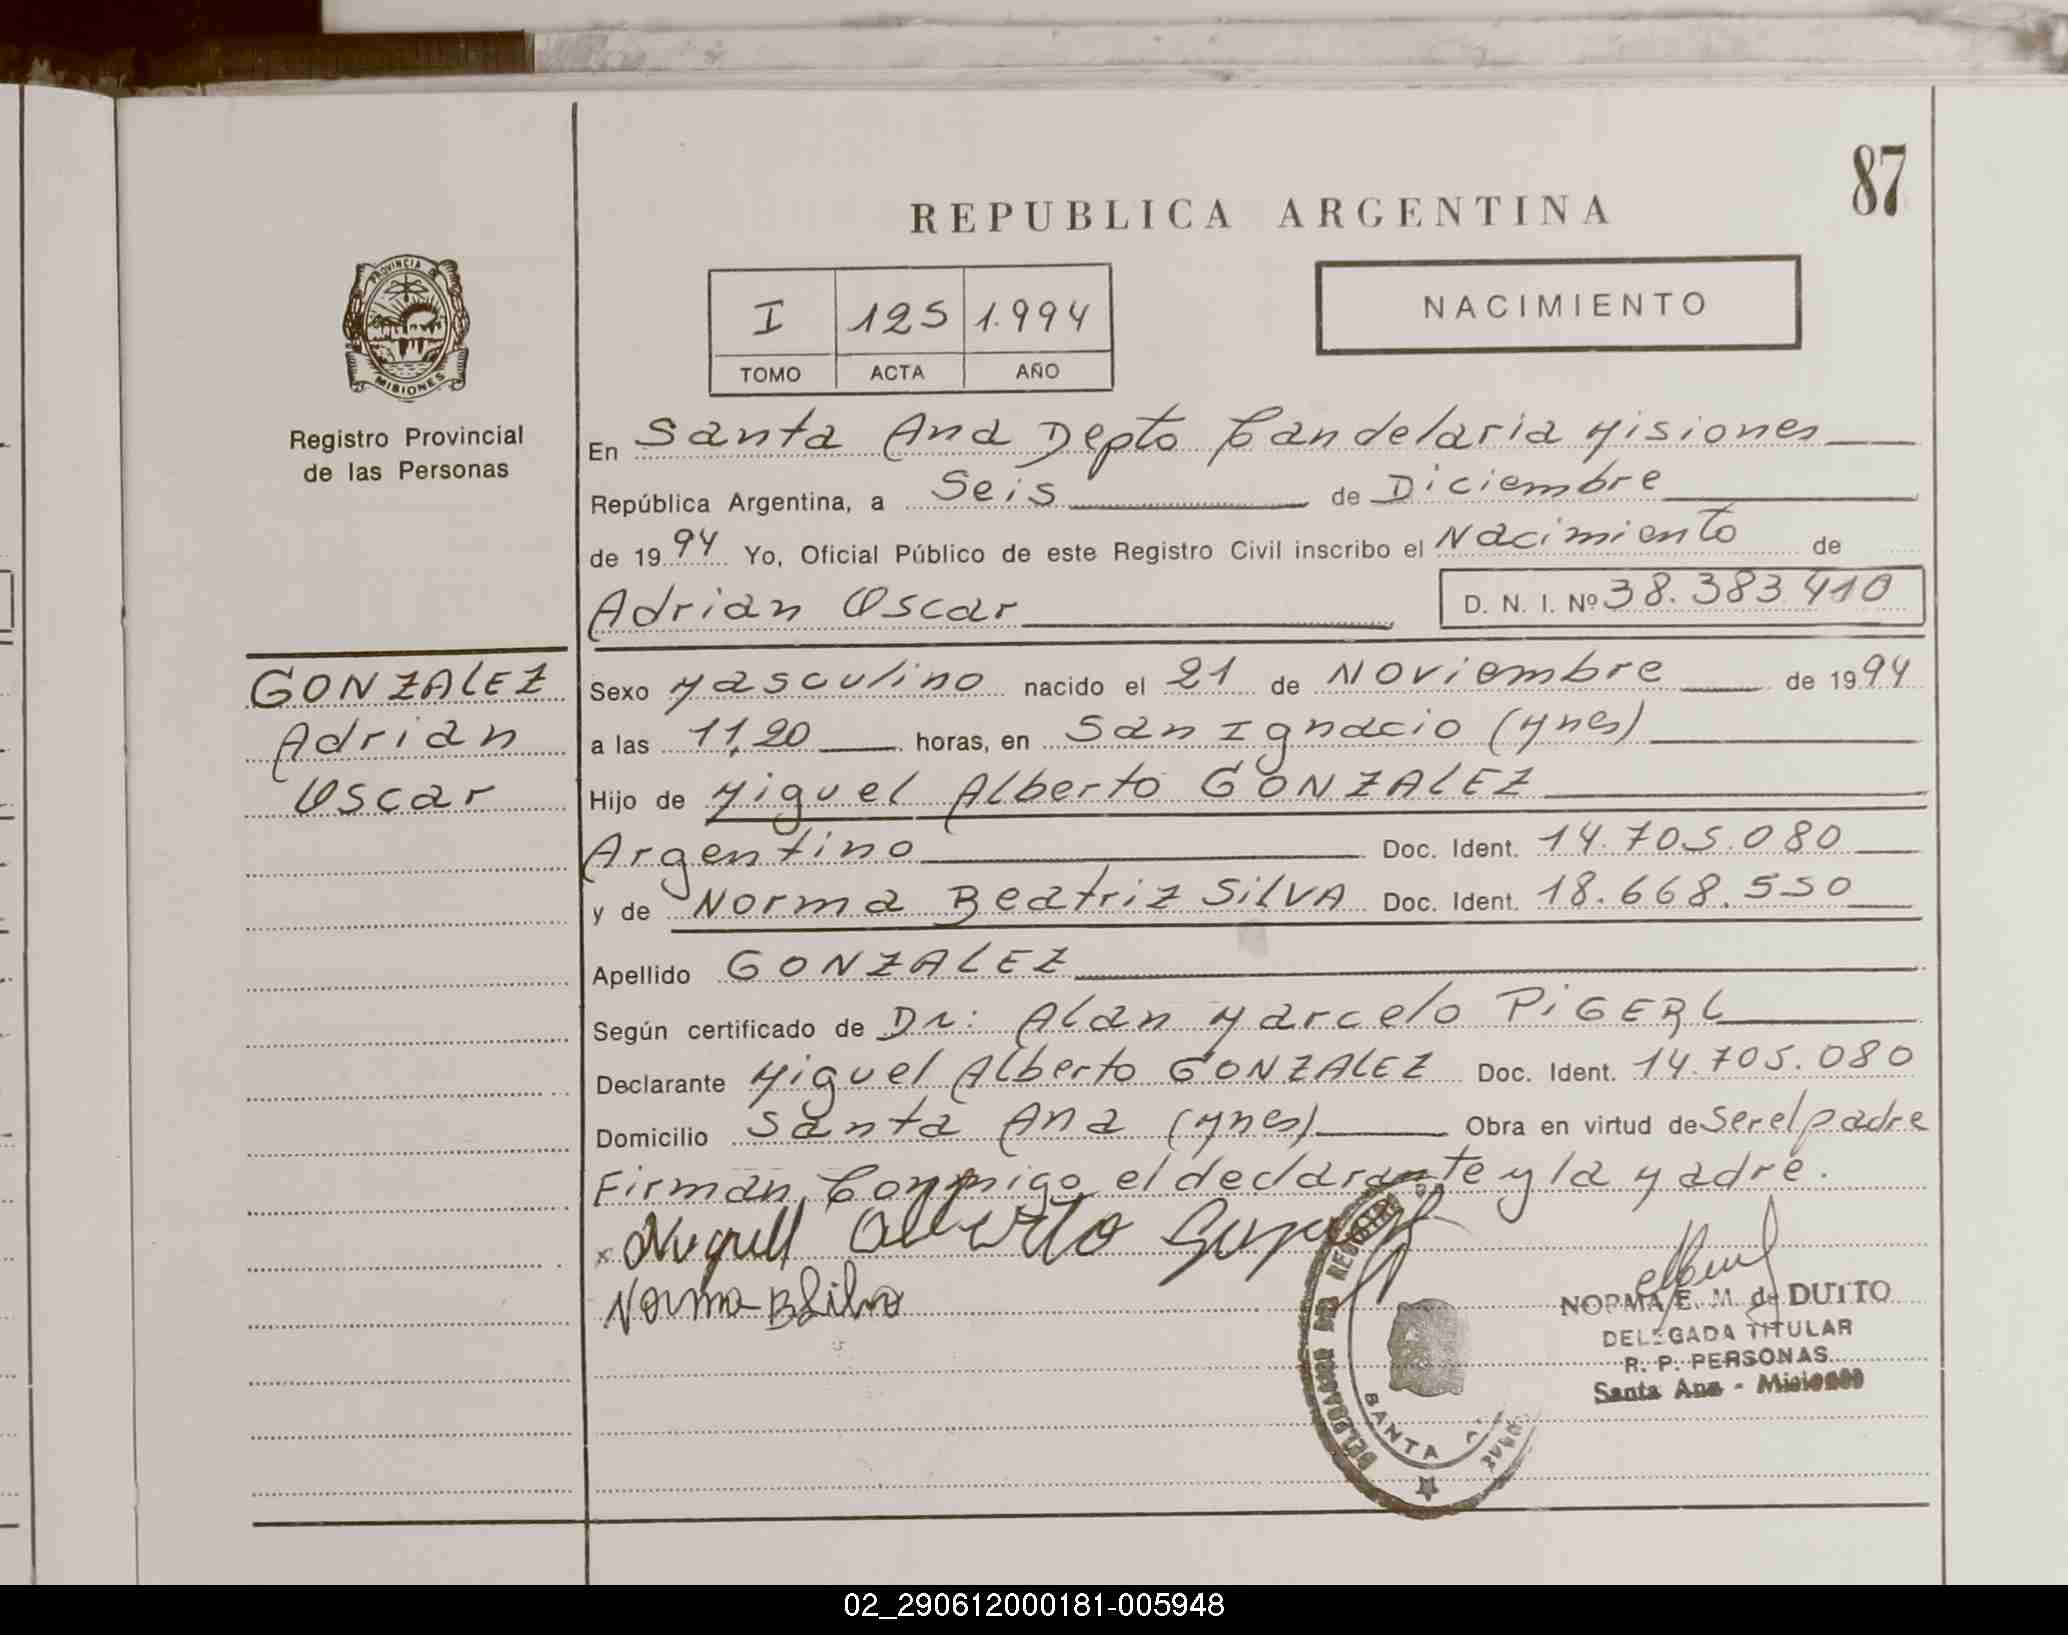 87
REPUBLICA ARGENTINA
PROVINCIA DE
MISIONES
I 125 1.994
TOMO ACTA AÑO
NACIMIENTO
Registro Provincial
de las Personas
En Santa Ana Depto Candelaria Misiones
República Argentina, a Seis de Diciembre
de 1994 Yo, Oficial Público de este Registro Civil inscribo el Nacimiento de
Adrian Oscar D. N. I. Nº 38.383.410
GONZALEZ
Adrian
Oscar
Sexo Masculino nacido el 21 de Noviembre de 1994
a las 11,20 horas, en San Ignacio (Mnes)
Hijo de Miguel Alberto GONZALEZ
Argentino Doc. Ident. 14.705.080
y de Norma Beatriz SILVA Doc. Ident. 18.668.550
Apellido GONZALEZ
Según certificado de Dr: Alan Marcelo PIGERL
Declarante Miguel Alberto GONZALEZ Doc. Ident. 14.705.080
Domicilio Santa Ana (Mnes) Obra en virtud de Ser el padre
Firman Conmigo el declarante y la Madre.
x Miguel Alberto
Norma B Silva
NORMA E. M. de DUTTO
DELEGADA TITULAR
R. P. PERSONAS
Santa Ana - Misiones
DELEGACION DEL REGISTRO
SANTA
02_290612000181-005948